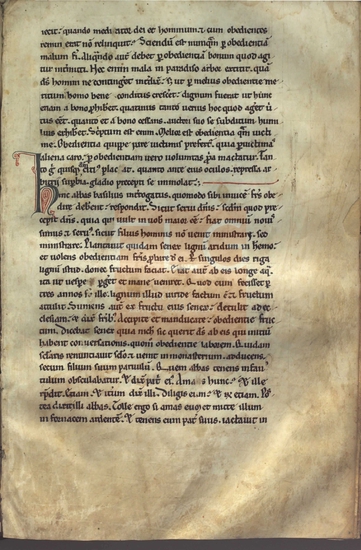 fecit. quando mediator dei et hominum. & cum obediences
remuneratione non relinquit. Sciendum est nunquam per obedientiam
malum fieri. aliquando autem debet per obedientiam bonum quod agitur
intermitti. Nec enim mala in paradiso arbor extitit. quam
deus homini ne contingeret interdixit. Sed ut per melius obedientie me
ritum homo bene conditus cresceret. dignum fuerat ut hunc
etiam a bono prohiberet. quatinus tanto verius hoc quod ageret uir
tus esset. quanto et a bono cessans. auctori suo se subditum hum
lius exhiberet. Scriptum est enim. Melior est obedientia quam victi
me. Obedientia quippe iure victimis prefertur. quia per victimas
aliena caro. per obedientiam vero uoluntas propria mactatur. Tan
to igitur quisque citius placat. quanto ante eius oculos. repressa ar
bitrii superbia. gladio precepti se immolat.
Hinc abbas basilius interrogatus. quomodo sibi inuicem fratres obe
dire debent. respondit. Sicut servi dominis. sicut quod pre
cepit dominus. quia qui uult in uob maior esse. fiat omnium nouissi
mus & seruus. sicut filius hominis non uenit ministrari. sed
ministrare. Plantauit quidam senex lignum aridum in heremo.
et uolens obedientiam fratris probare
lignum istud. donec fructum faciat. Erat autem ab eis longe aqua.
ita ut uespere pergeret et mane ueniret. Quod cum fecisset per
tres annos frater ille. lignum illud uiride factum est & fructum
attulit. Sumens autem ex fructu eius senex. detulit ad ec
clesiam. & dixit fratribus. Accipite et manducate obedientie fruc
tum. Dicebat senex quia
habent conuersationis. quoniam obedientie laborem. Quidam
secularis renuntiauit seculo & uenit in monasterium. adducens
secum filium suum paruulum. Quem abbas tenens
osculabatur. & dixit patri ei. Amas hunc. & ille
respondit. Etiam. & iterum dixit illi. Diligis eum. & dixit etiam. Pos
tea dixit illi abbas. Tolle ergo si amas eum et mitte illum
in fornacem ardentem. & tenens eum pater suus. iactauit in